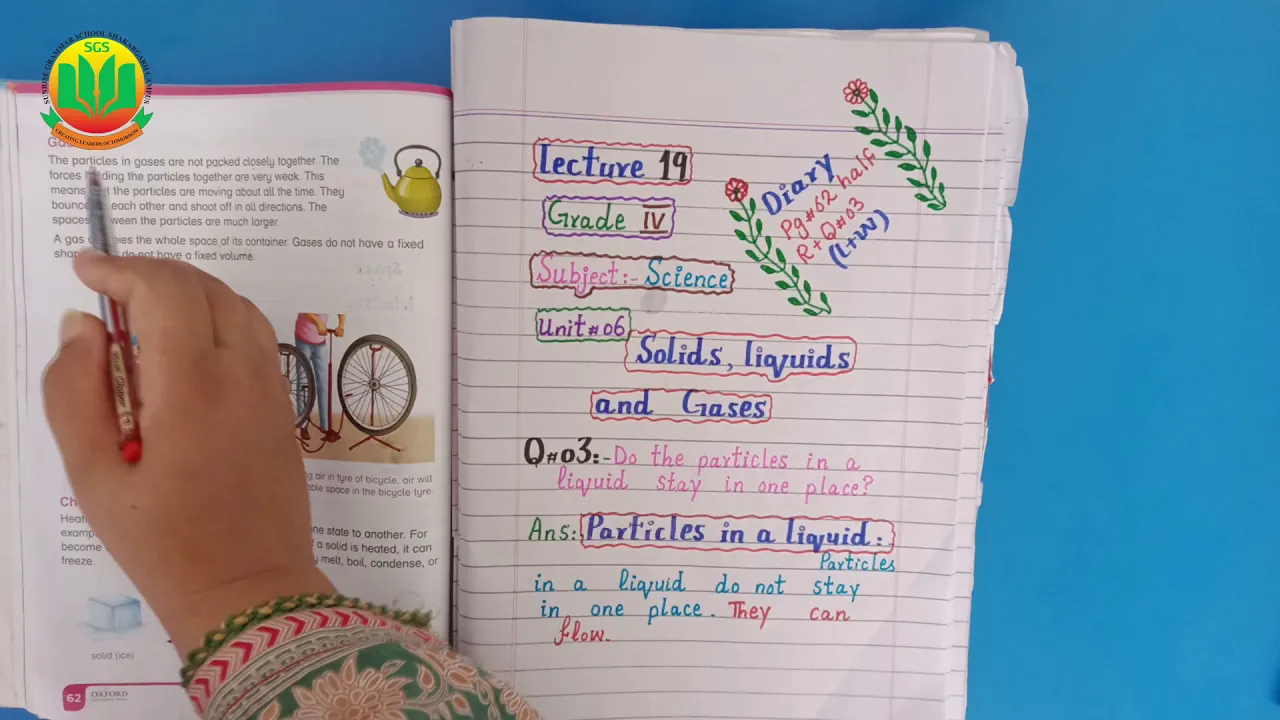 SUNRISE GRAMMAR SCHOOL SHAKARGARH CAMPUS
SGS
CREATING LEADERS OF TOMORROW
The particles in gases are not packed closely together. The
forces holding the particles together are very weak. This
means the particles are moving about all the time. They
bounce each other and shoot off in all directions. The
spaces between the particles are much larger.
A gas the whole space of its container. Gases do not have a fixed
do not have a fixed volume.
air in tyre of bicycle, air will
space in the bicycle tyre.
one state to another. For
a solid is heated, it can
become melt, boil, condense, or
freeze.
solid (ice)
62 OXFORD
Lecture 19
Grade IV
Subject:- Science
Unit#06
Solids, liquids
and Gases
Diary
Pg#62 half
R+Q#03
(L+W)
Q#03:- Do the particles in a
liquid stay in one place?
Ans: Particles in a liquid:
Particles
in a liquid do not stay
in one place. They can
flow.